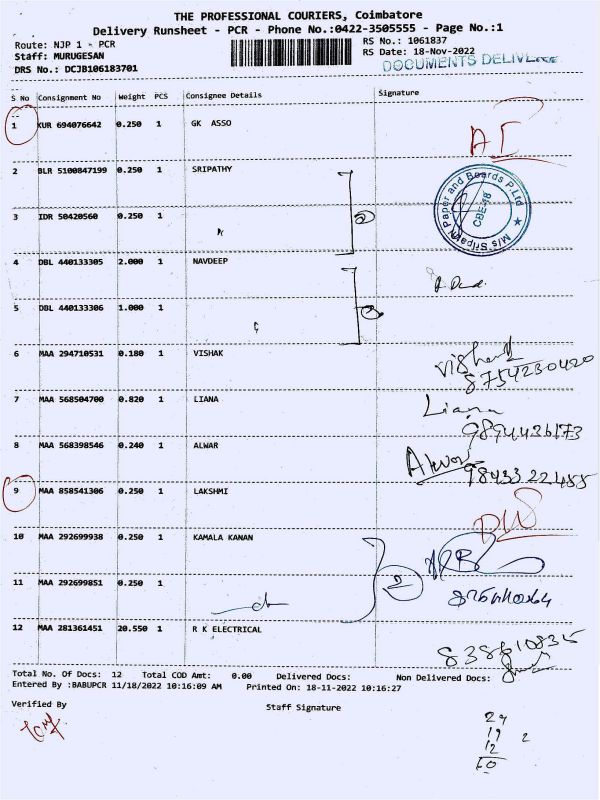 THE PROFESSIONAL COURIERS, Coimbatore
Delivery Runsheet - PCR - Phone No.:0422-3505555 - Page No.:1
Route: NJP 1 - PCR RS No.: 1061837
Staff: MURUGESAN RS Date: 18-Nov-2022
DRS No.: DCJB106183701 DOCUMENTS
S No Consignment No Weight PCS Consignee Details Signature
1 KUR 694076642 0.250 1 GK ASSO
2 BLR 5100847199 0.250 1 SRIPATHY
M/s Sripathy Paper and Boards P.Ltd
CBE-18
3 IDR 50420560 0.250 1
4 DBL 440133305 2.000 1 NAVDEEP
5 DBL 440133306 1.000 1
6 MAA 294710531 0.180 1 VISHAK
8754230420
7 MAA 568504700 0.820 1 LIANA Liana
9894436173
8 MAA 568398546 0.240 1 ALWAR Alwar
9843322485
9 MAA 858541306 0.250 1 LAKSHMI
10 MAA 292699938 0.250 1 KAMALA KANAN
11 MAA 292699851 0.250 1 2
12 MAA 281361451 20.550 1 R K ELECTRICAL
Total No. Of Docs: 12 Total COD Amt: 0.00 Delivered Docs: Non Delivered Docs:
Entered By :BABUPCR 11/18/2022 10:16:09 AM Printed On: 18-11-2022 10:16:27
Verified By Staff Signature
19 2
12